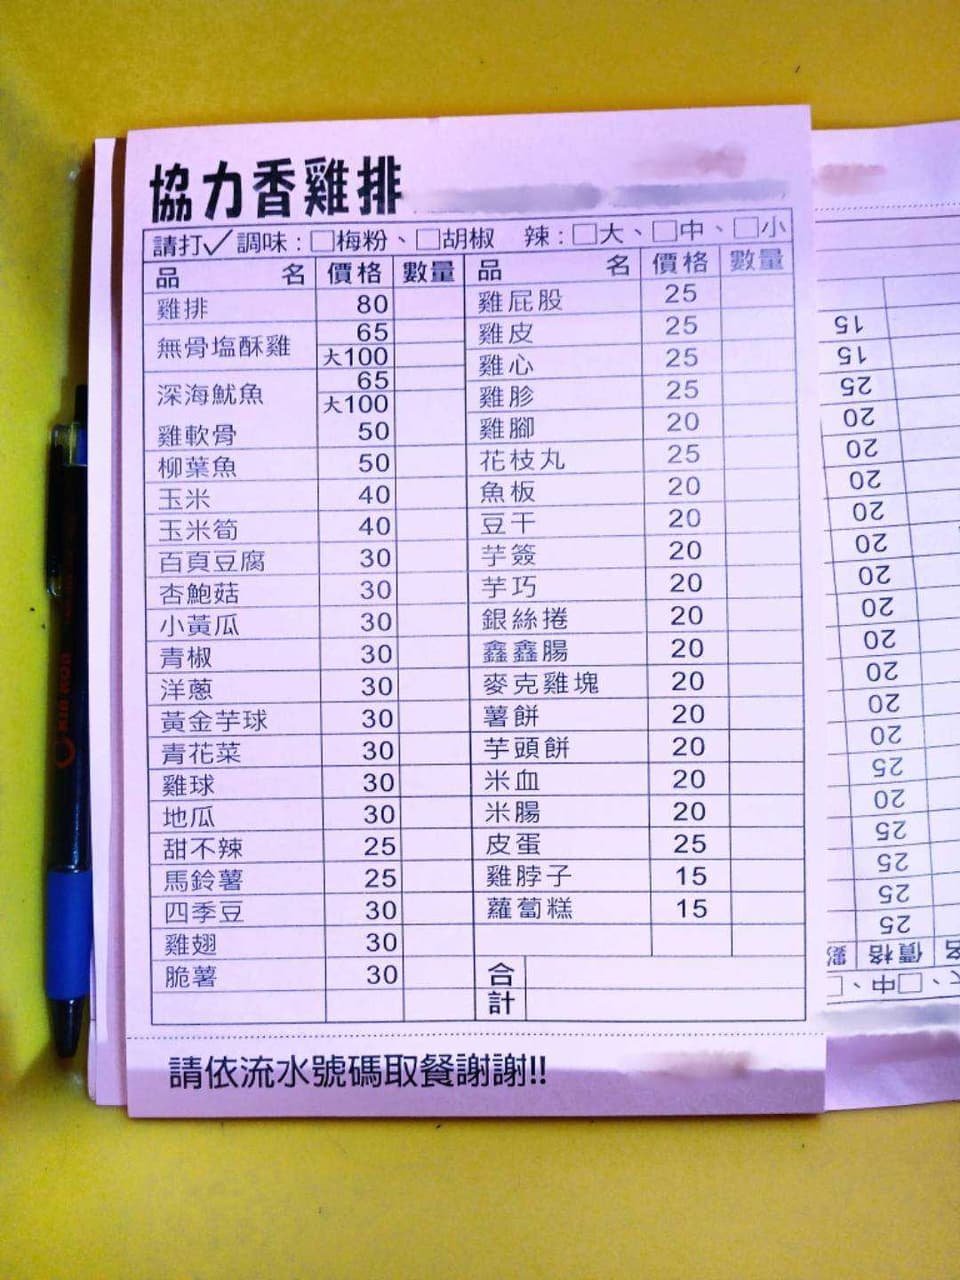 協力香雞排
請打✓調味:□梅粉、□胡椒 辣:□大、□中、□小
品名 價格 數量 品名 價格 數量
雞排 80 雞屁股 25
無骨塩酥雞 65 大100 雞皮 25
深海魷魚 65 大100 雞心 25
雞軟骨 50 雞胗 25
柳葉魚 50 雞腳 20
玉米 40 花枝丸 25
玉米筍 40 魚板 20
百頁豆腐 30 豆干 20
杏鮑菇 30 芋簽 20
小黃瓜 30 芋巧 20
青椒 30 銀絲捲 20
洋蔥 30 鑫鑫腸 20
黃金芋球 30 麥克雞塊 20
青花菜 30 薯餅 20
雞球 30 芋頭餅 20
地瓜 30 米血 20
甜不辣 25 米腸 20
馬鈴薯 25 皮蛋 25
四季豆 30 雞脖子 15
雞翅 30 蘿蔔糕 15
脆薯 30
合計
請依流水號碼取餐謝謝!!
15
15
25
20
20
20
20
20
20
20
20
20
20
25
20
25
25
25
25
價格
□中、